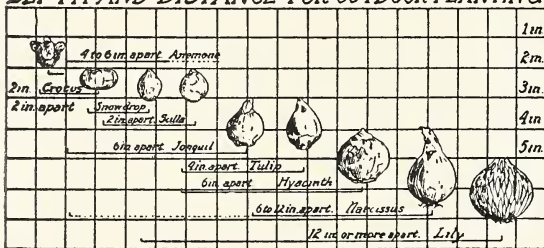 DEPTH AND DISTANCE FOR OUTDOOR PLANTING
1in.
4 to 6in. apart Anemone
2in.
2in. Crocus
3in.
2in. apart
Snowdrop
2in. apart. Scilla
4in
6in apart Jonquil
5in.
4in. apart Tulip
6in. apart Hyacinth
6 to 12in. apart. Narcissus
12 in. or more apart. Lily